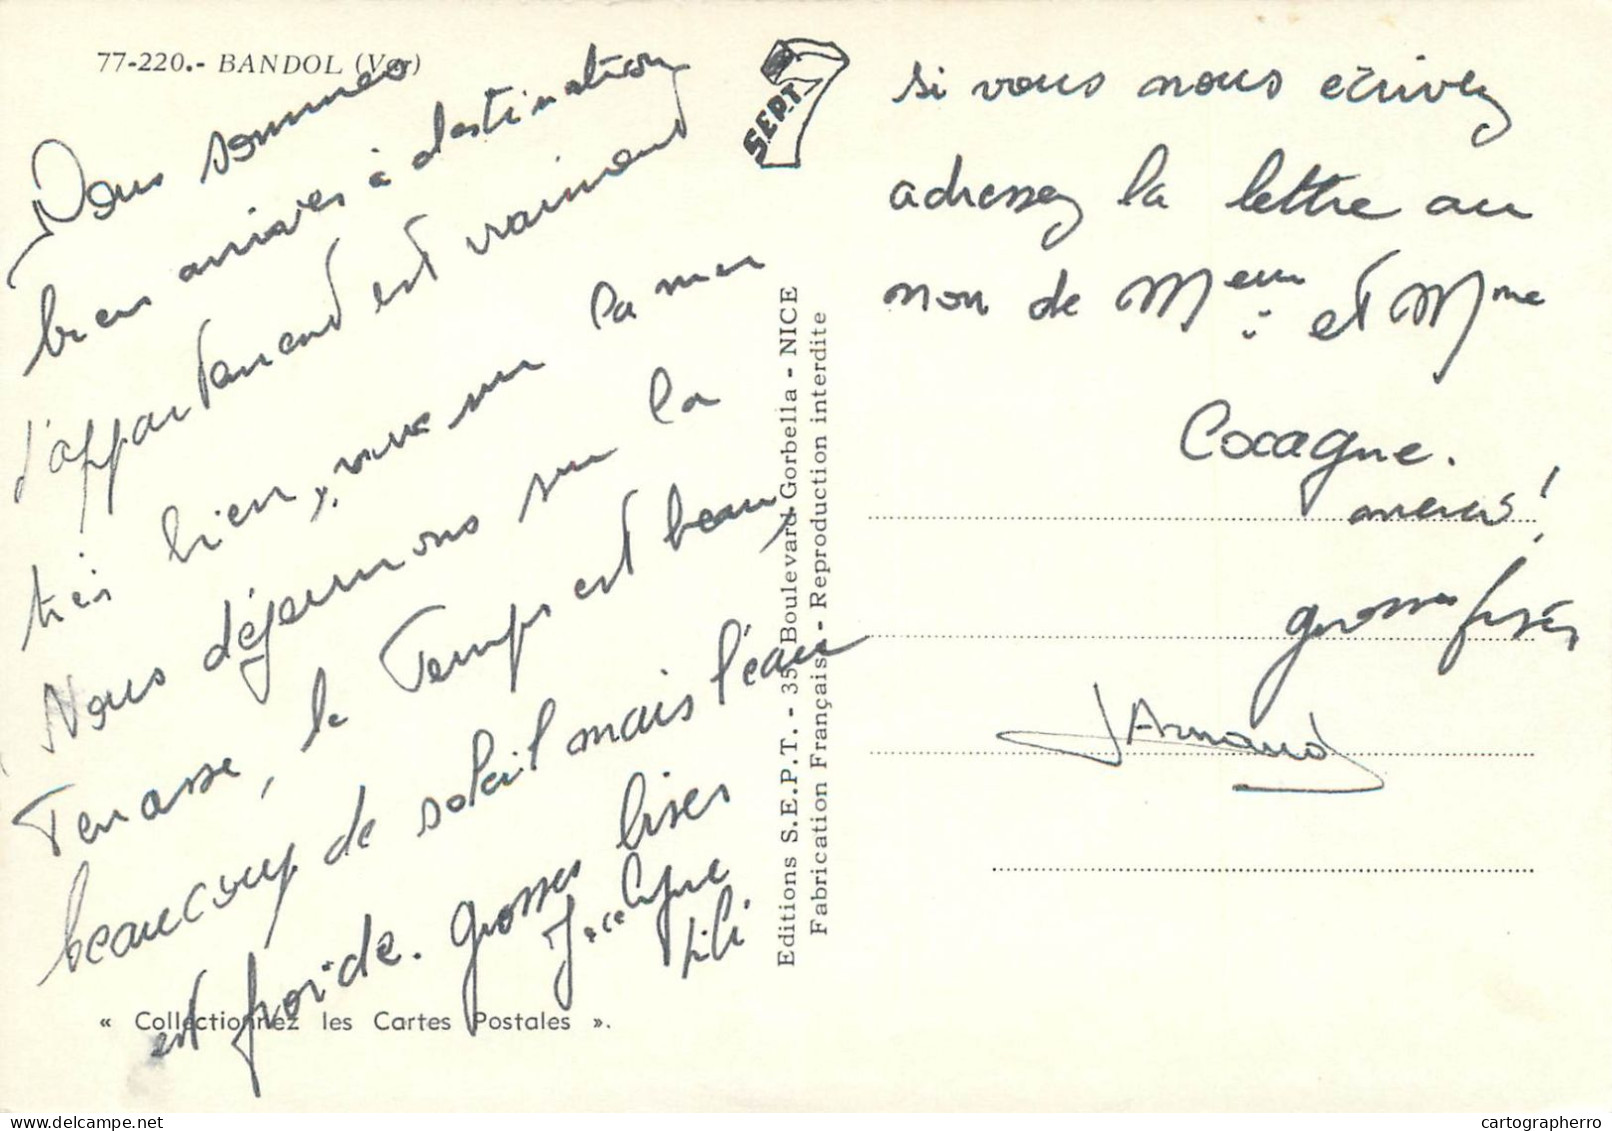 77-220.- BANDOL (Var)
Nous sommes
bien arrivés à destination
l'appartement est vraiment
très bien, vue sur la mer
Nous déjeunons sur la
Terrasse, le Temps est beau,
beaucoup de soleil mais l'eau
est froide. grosses bises
Jacqueline
Lili
« Collectionnez les Cartes Postales ».
S.E.P.T.
Editions S.E.P.T. - 35 Boulevard Gorbella - NICE
Fabrication Française - Reproduction interdite
si vous nous écrivez
adressez la lettre au
non de Meur et Mme
Cocagne.
merci!
grosses bises
JArnaud
cartographerro